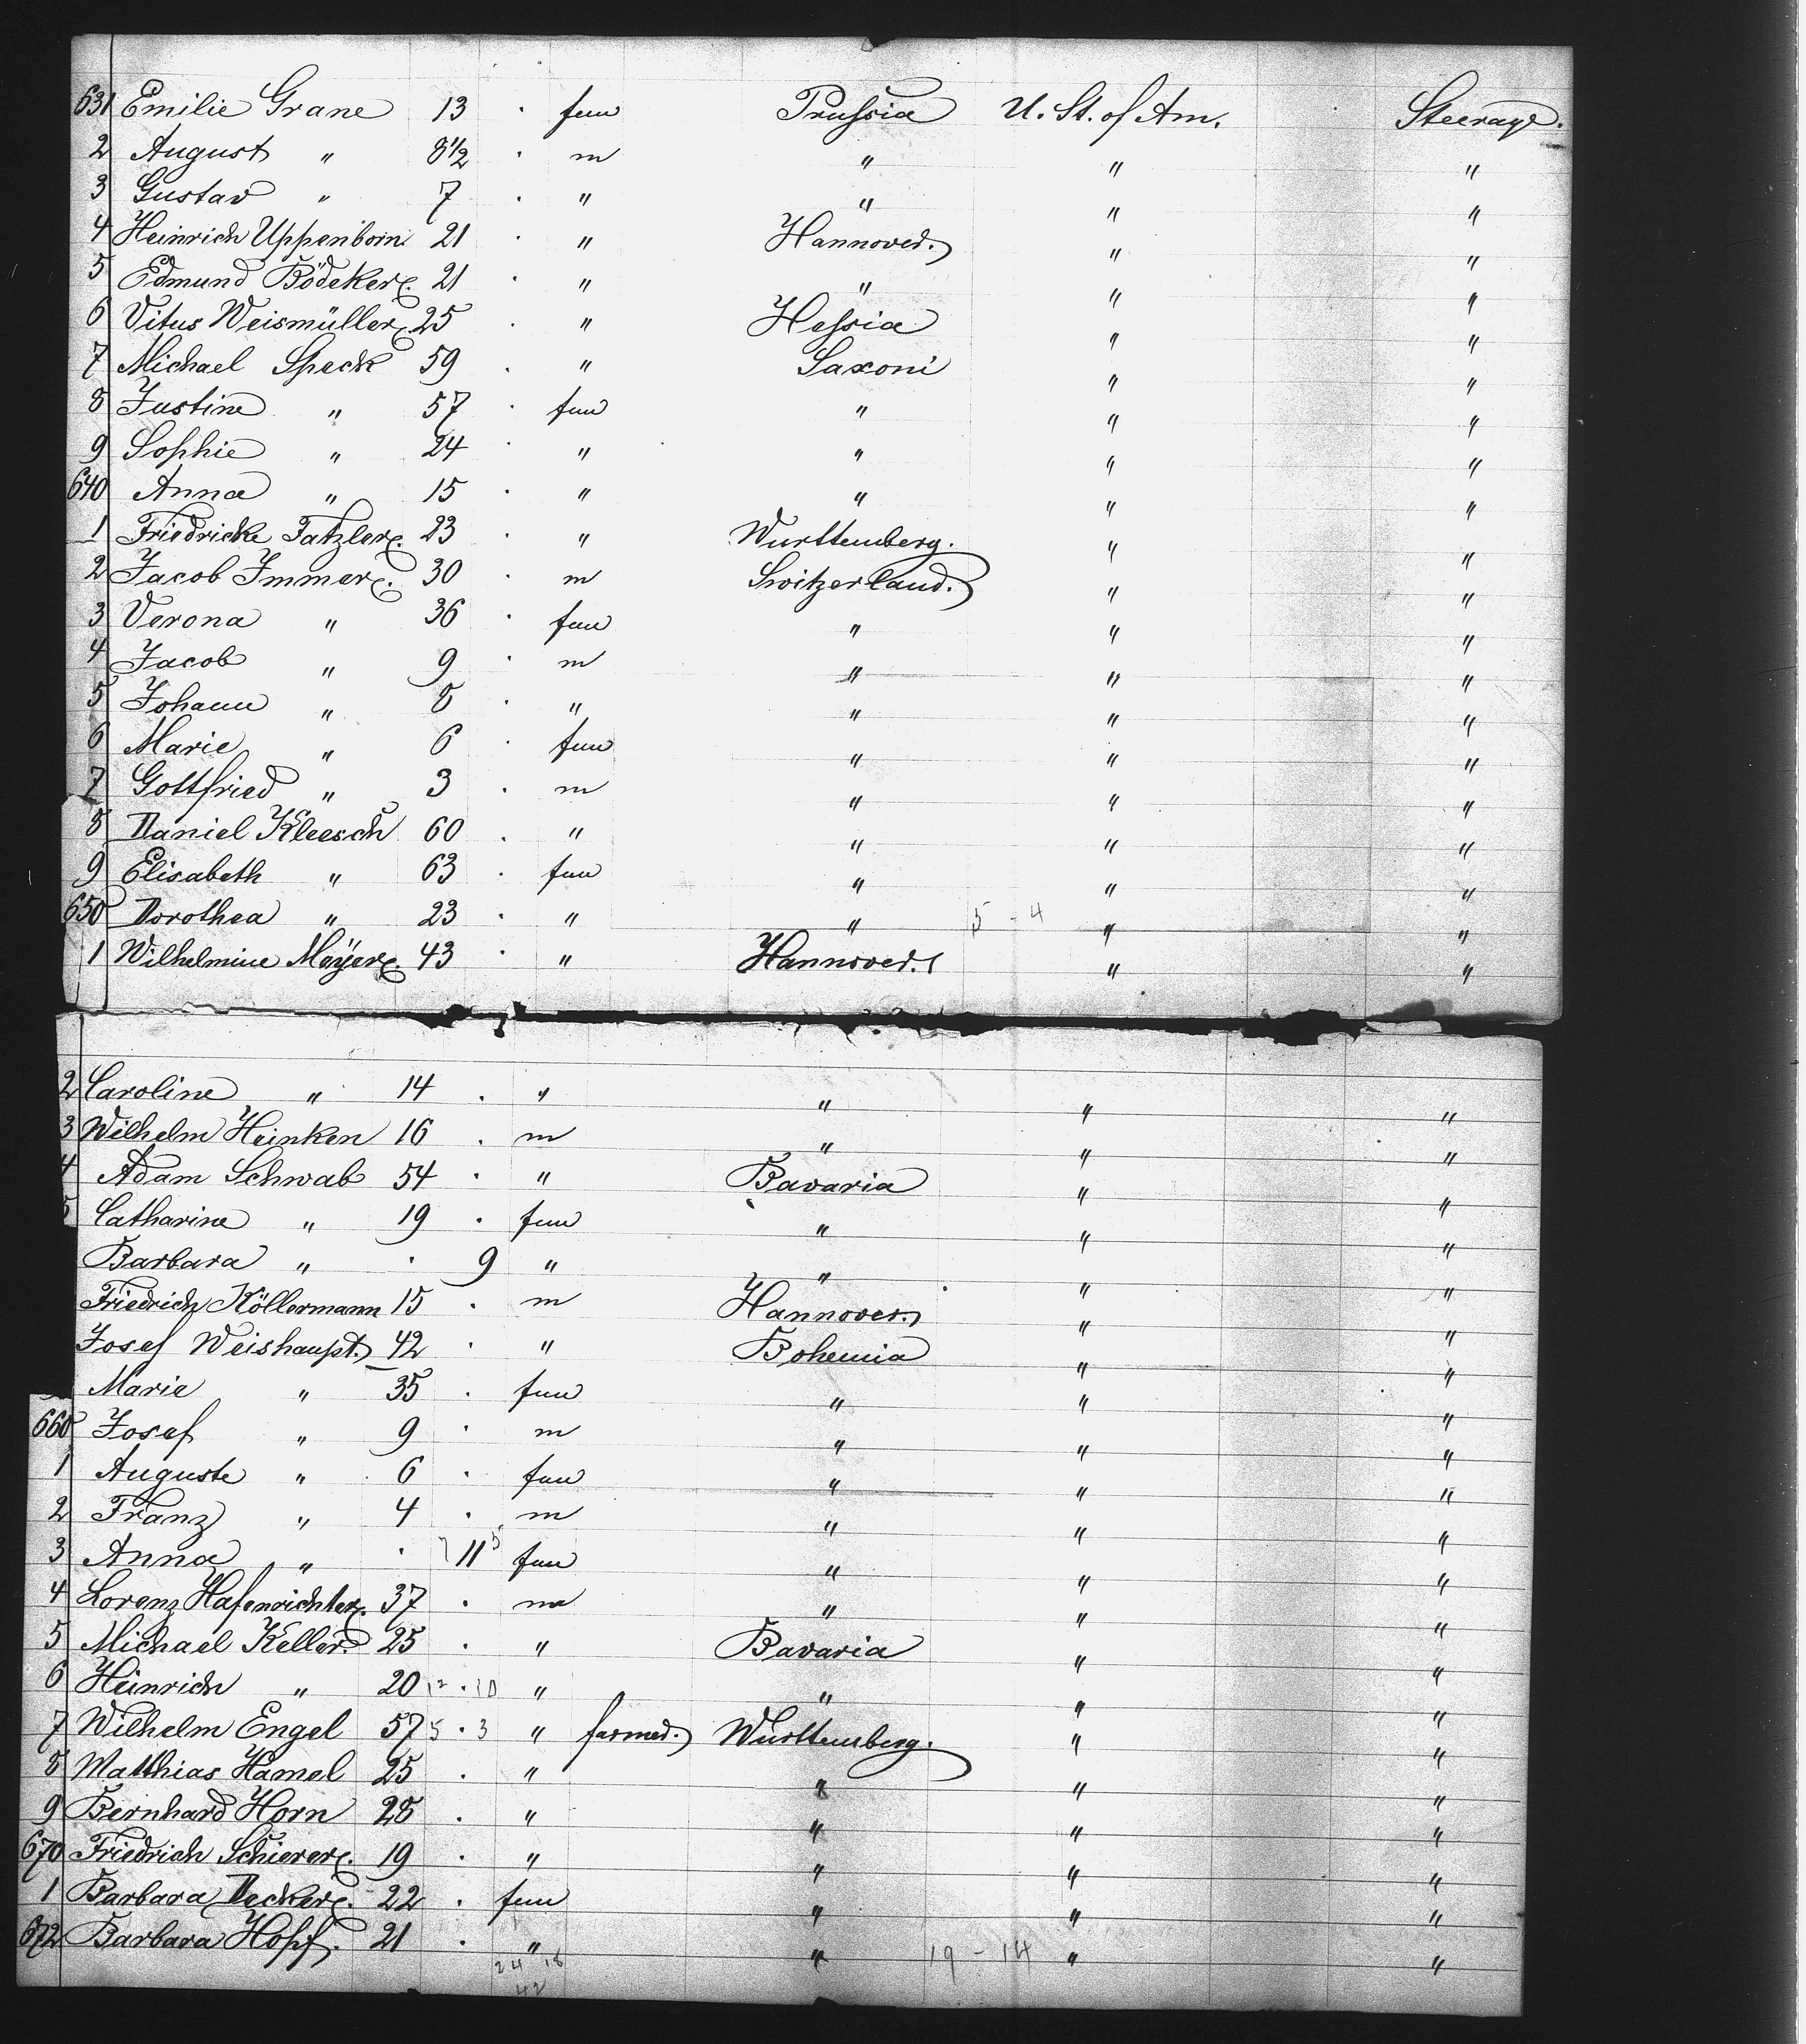 631 Emilie Grane 13 · fem Prussia U. St. of Am. Steerage.
2 August " 8 1/2 · m " " "
3 Gustav " 7 · " " " "
4 Heinrich Uppenborn 21 · " Hannover. " "
5 Edmund Bödeker. 21 · " " " "
6 Vitus Weismüller, 25 · " Hessia " "
7 Michael Speck 59 · " Saxoni " "
8 Justine " 57 · fem " " "
9 Sophie " 24 · " " " "
640 Anna " 15 · " " " "
1 Friedricke Tatzler. 23 · " Wurttemberg. " "
2 Jacob Immer. 30 · m Switzerland. " "
3 Verona " 36 · fem " " "
4 Jacob " 9 · m " " "
5 Johann " 8 · " " " "
6 Marie " 6 · fem " " "
7 Gottfried " 3 · m " " "
8 Daniel Kleesch 60 · " " " "
9 Elisabeth " 63 · fem " " "
650 Dorothea " 23 · " " 5 - 4 " "
1 Wilhelmine Mäyer. 43 · " Hannover. " "
2 Caroline " 14 · " " " "
3 Wilhelm Heinken 16 · m " " "
4 Adam Schwab 54 · " Bavaria " "
5 Catharine " 19 · fem " " "
Barbara " · 9 " " " "
Friedrich Köllermann 15 · m Hannover. " "
Josef Weishaupt. 42 · " Bohemia " "
Marie " 35 · fem " " "
660 Josef " 9 · m " " "
1 Auguste " 6 · fem " " "
2 Franz " 4 · m " " "
3 Anna " · 7 11 5 fem " " "
4 Lorenz Hafenrichter. 37 · m " " "
5 Michael Keller. 25 · " Bavaria " "
6 Heinrich " 20 12 · 10 " " " "
7 Wilhelm Engel 57 5 · 3 " farmer. Württemberg. " "
8 Matthias Hamel 25 · " " " "
9 Bernhard Horn 28 · " " " "
670 Friedrich Schierer. 19 · " " " "
1 Barbara Decker. 22 · fem " " "
672 Barbara Hopf. 21 · " " 19 - 14 " "
24 18
42